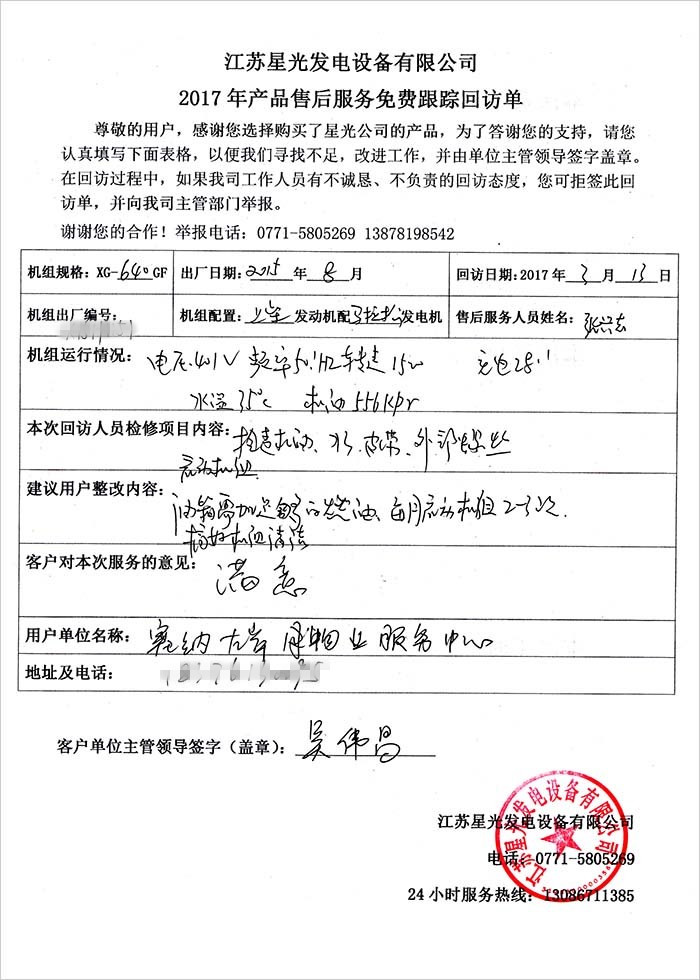 江苏星光发电设备有限公司
2017年产品售后服务免费跟踪回访单
尊敬的用户，感谢您选择购买了星光公司的产品，为了答谢您的支持，请您
认真填写下面表格，以便我们寻找不足，改进工作，并由单位主管领导签字盖章。
在回访过程中，如果我司工作人员有不诚恳、不负责的回访态度，您可拒签此回
访单，并向我司主管部门举报。
谢谢您的合作！举报电话：0771-5805269 13878198542
机组规格：XG-640GF 出厂日期：2015 年 8 月 回访日期：2017年 3 月 13 日
机组出厂编号： 机组配置：上柴 发动机配 马拉松 发电机 售后服务人员姓名：
机组运行情况：电压401V 频率50.1HZ 转速1500 充电28.1
水温35℃ 机油556kpr
本次回访人员检修项目内容：检查机油、水、皮带、外部
启动机组
建议用户整改内容：油箱需加足够的燃油、每月启动机组2-3次.
搞好机组清洁
客户对本次服务的意见：满意
用户单位名称：塞纳左岸 物业服务中心
地址及电话：
客户单位主管领导签字（盖章）：吴伟昌
江苏星光发电设备有限公司
江苏星光发电设备有限公司
电话：0771-5805269
24小时服务热线：13086711385